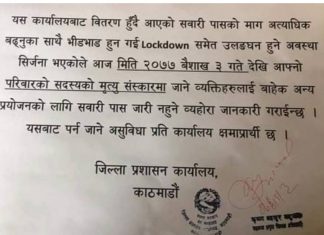 यस कार्यालयबाट वितरण हुँदै आएको सवारी पासको माग अत्याधिक
बढ्नुका साथै भीडभाड हुन गई Lockdown समेत उलङघन हुने अवस्था
सिर्जना भएकोले आज मिति २०७७ बैशाख ३ गते देखि आफ्नो
परिवारको सदस्यको मृत्यु संस्कारमा जाने व्यक्तिहरुलाई वाहेक अन्य
प्रयोजनको लागि सवारी पास जारी नहुने व्यहोरा जानकारी गराईन्छ ।
यसबाट पर्न जाने असुविधा प्रति कार्यालय क्षमाप्रार्थी छ ।
जिल्ला प्रशासन कार्यालय,
काठमाडौं